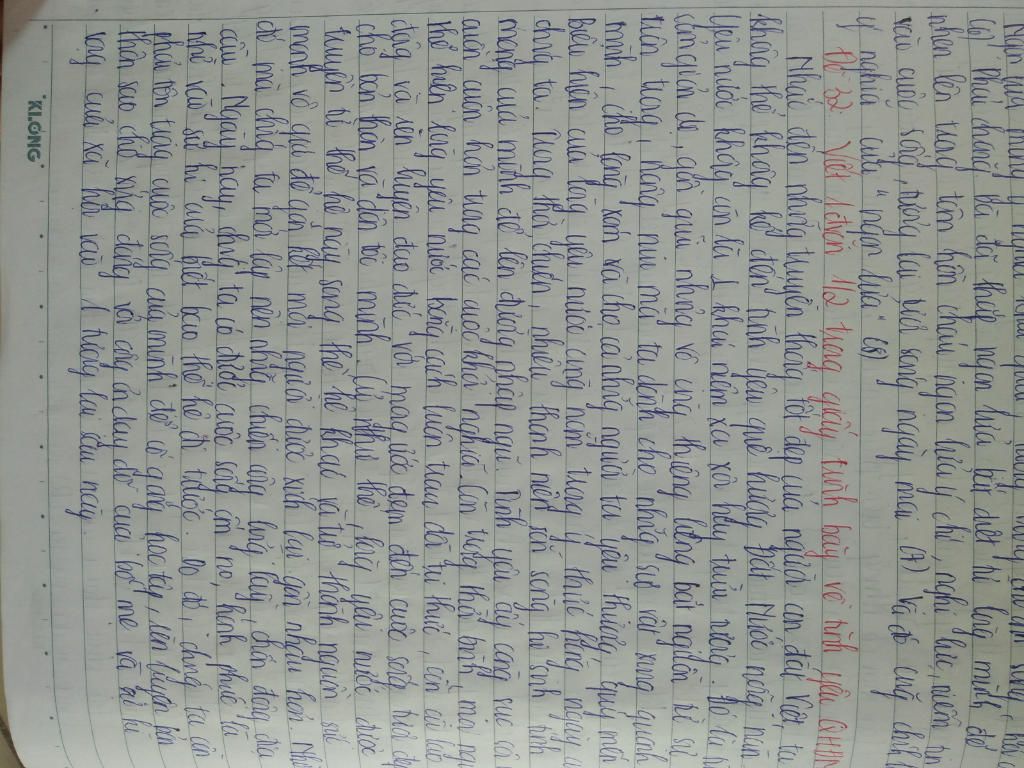 có) Phải chăng đã đốt
nhen lên trong tâm hồn cháu ngọn lửa ý chí, nghị lực, niềm tin
vào cuộc sống, tương lai tươi sáng ngày mai. (A) Và đó cũng chính
ý nghĩa của "ngọn lửa" (s)
Đề 32: Viết 1 đvăn 1/2 trang giấy trình bày về tình yêu QHĐN
Nhắc đến những truyền thống tốt đẹp của người con đất Việt, ta
không thể không kể đến tình yêu quê hương Đất Nước nồng nàn
Yêu nước không cần là 1 khái niệm xa xôi hay trừu tượng. Nó là
giản dị, gần gũi nhưng vô cùng thiêng liêng bắt nguồn từ sự
trân trọng, nâng niu mà ta dành cho những sự vật xung quanh
mình, cho làng xóm và cho cả những người ta yêu thương, quý mến
Biểu hiện của lòng yêu nước cũng nằm trong ý thức hằng ngày của
chúng ta. Trong thời chiến, nhiều thanh niên sẵn sàng hi sinh tính
mạng của mình để lên đường nhập ngũ. Tình yêu ấy càng sục sôi
cuồn cuộn hơn trong các cuộc khởi nghĩa. Còn trong thời bình, mọi người
thể hiện lòng yêu nước bằng cách luôn trau dồi tri thức, lao
động và rèn luyện đạo đức với mong ước đem đến cuộc sống tươi đẹp
cho bản thân và dân tộc mình. Cứ như thế, lòng yêu nước được
truyền từ thế hệ này sang thế hệ khác và trở thành nguồn sức
mạnh vô giá để gắn kết mọi người được xích lại gần nhau hơn. Nhờ
đó mà chúng ta mới lập nên những chiến công lừng lẫy, chấn động địa
cầu. Ngày nay, chúng ta có được cuộc sống ấm no, hạnh phúc là
nhờ vào sự hi của biết bao thế hệ đi trước. Do đó, chúng ta cần
phải trân trọng cuộc sống của mình để cố gắng học tập, rèn luyện bản
thân sao cho xứng đáng với công ơn của bố mẹ và
vọng của xã hội vào 1 tương lai sau này.
KLONG